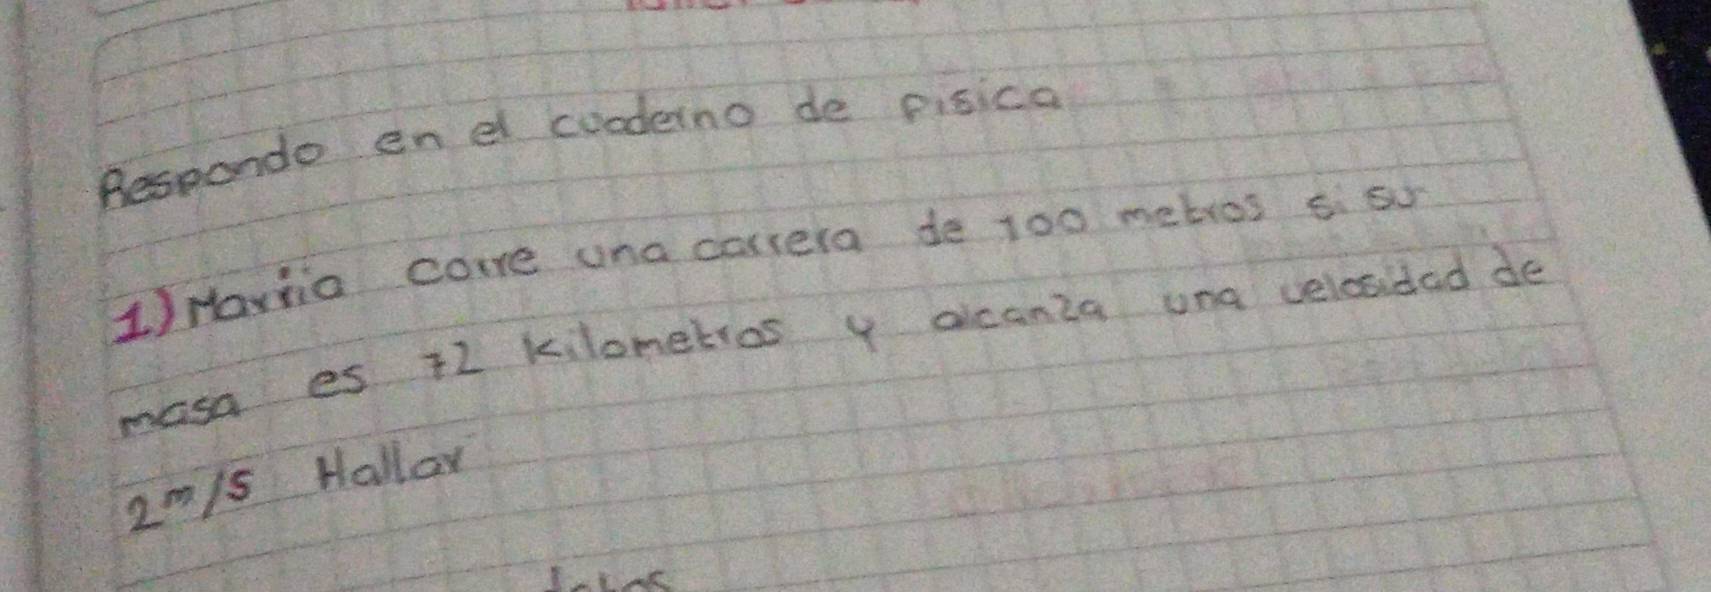 Respondo en el cuaderno de fisica
1) Marria corre una carrera de 100 metros si su
masa es 72 Kilometros y alcanza una velosidad de
2 m/s Hallar
datos